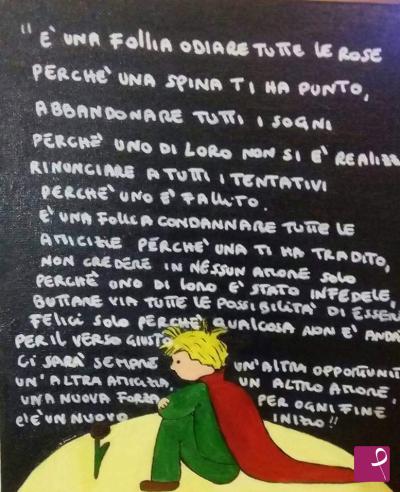 "È UNA FOLLIA ODIARE TUTTE LE ROSE
PERCHÈ UNA SPINA TI HA PUNTO,
ABBANDONARE TUTTI I SOGNI
PERCHÈ UNO DI LORO NON SI È REALIZZ
RINUNCIARE A TUTTI I TENTATIVI
PERCHÈ UNO È FALLITO.
È UNA FOLLIA CONDANNARE TUTTE LE
AMICIZIE PERCHÈ UNA TI HA TRADITO,
NON CREDERE IN NESSUN AMORE SOLO
PERCHÈ UNO DI LORO È STATO INFEDELE,
BUTTARE VIA TUTTE LE POSSIBILITÀ DI ESSERE
FELICI SOLO PERCHÈ QUALCOSA NON È ANDA
PER IL VERSO GIUSTO
CI SARÀ SEMPRE UN'ALTRA OPPORTUNIT
UN'ALTRA AMICIZIA, UN ALTRO AMORE,
UNA NUOVA FORZA PER OGNI FINE
C'È UN NUOVO INIZIO!!